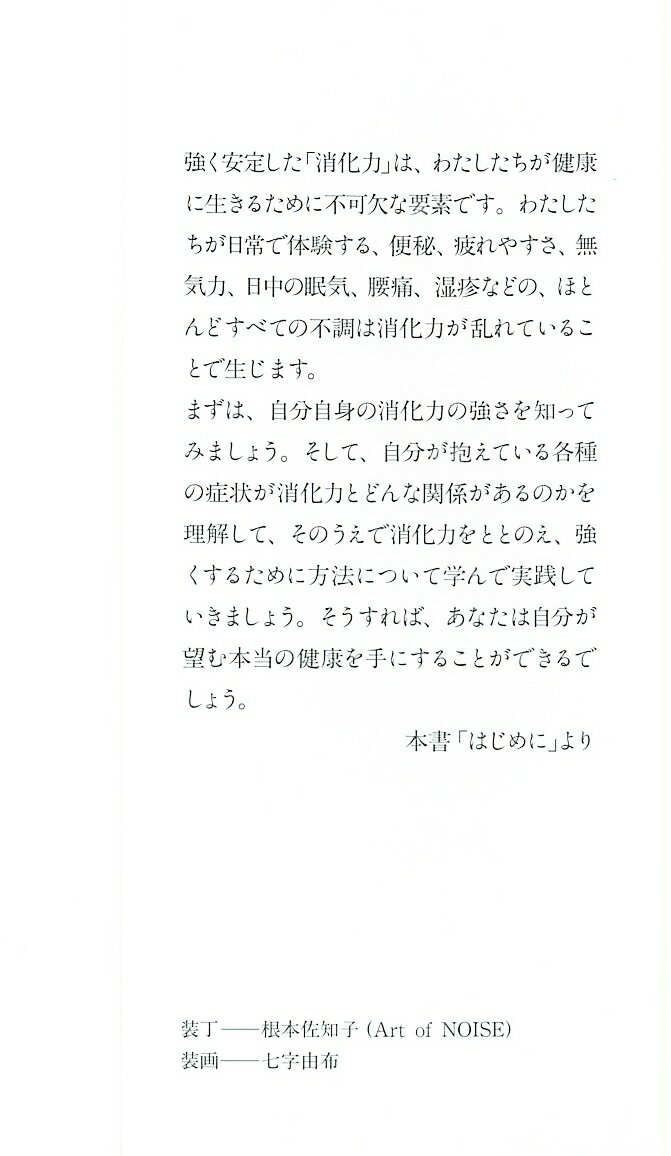 強く安定した「消化力」は、わたしたちが健康
に生きるために不可欠な要素です。わたした
ちが日常で体験する、便秘、疲れやすさ、無
気力、日中の眠気、腰痛、湿疹などの、ほと
んどすべての不調は消化力が乱れているこ
とで生じます。
まずは、自分自身の消化力の強さを知って
みましょう。そして、自分が抱えている各種
の症状が消化力とどんな関係があるのかを
理解して、そのうえで消化力をととのえ、強
くするために方法について学んで実践して
いきましょう。そうすれば、あなたは自分が
望む本当の健康を手にすることができるで
しょう。
本書「はじめに」より
装丁——根本佐知子 (Art of NOISE)
装画——七字由布